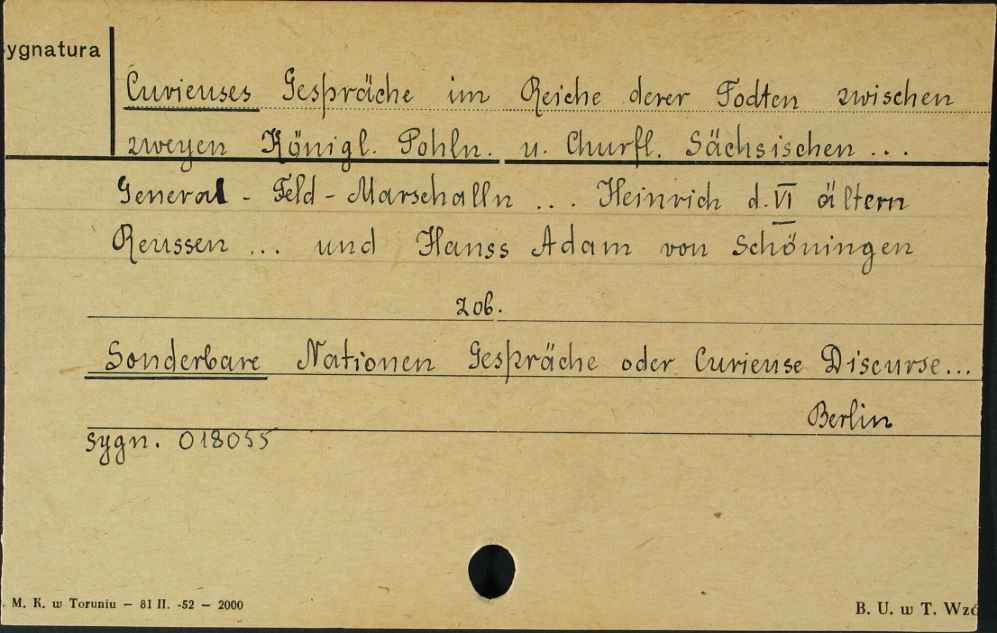 ygnatura
Curieuses Gespräche im Reiche derer Todten zwischen
zweyen Königl. Pohln. u. Churfl. Sächsischen ...
General - Feld - Marschalln ... Heinrich d. VI ältern
Reussen ... und Hanss Adam von Schöningen
zob.
Sonderbare Nationen Gespräche oder Curieuse Discurse...
Berlin
sygn. 018055
. M. K. w Toruniu — 81 II. -52 — 2000
B. U. w T. Wzó